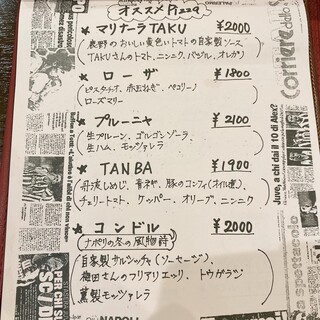 オススメ Pizza
★ マリナーラ TAKU ¥2000
長野のおいしい黄色いトマトの自家製ソース、
TAKUさんのトマト、ニンニク、バジル、オレガノ
★ ローザ ¥1800
ピスタチオ、赤玉ねぎ、ペコリーノ
ローズマリー
★ プルーニャ ¥2100
生プルーン、ゴルゴンゾーラ、
生ハム、モッツァレラ
★ TANBA ¥1900
丹波しめじ、青ネギ、豚のコンフィ(オイル煮)、
チェリートマト、ケッパー、オリーブ、ニンニク
★ コンドル ¥2000
ナポリの冬の風物詩
自家製サルシッチャ(ソーセージ)、
さんのフリアリエッリ、トウガラシ
燻製モッツァレラ
Corriere dello
Juve, a chi dai il 10 di Alex?
spettacolo
NAPOLI